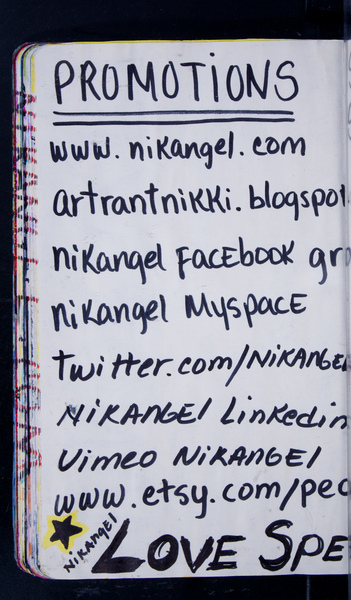 PROMOTIONS
www.nikangel.com
artrantnikki.blogspot
nikangel FACEBOOK gr
nikangel MYSPACE
twitter.com/NIKANGEL
NIKANGEL Linkedin
Vimeo NIKANGEL
www.etsy.com/pec
NIKANGEL
LOVE SPE